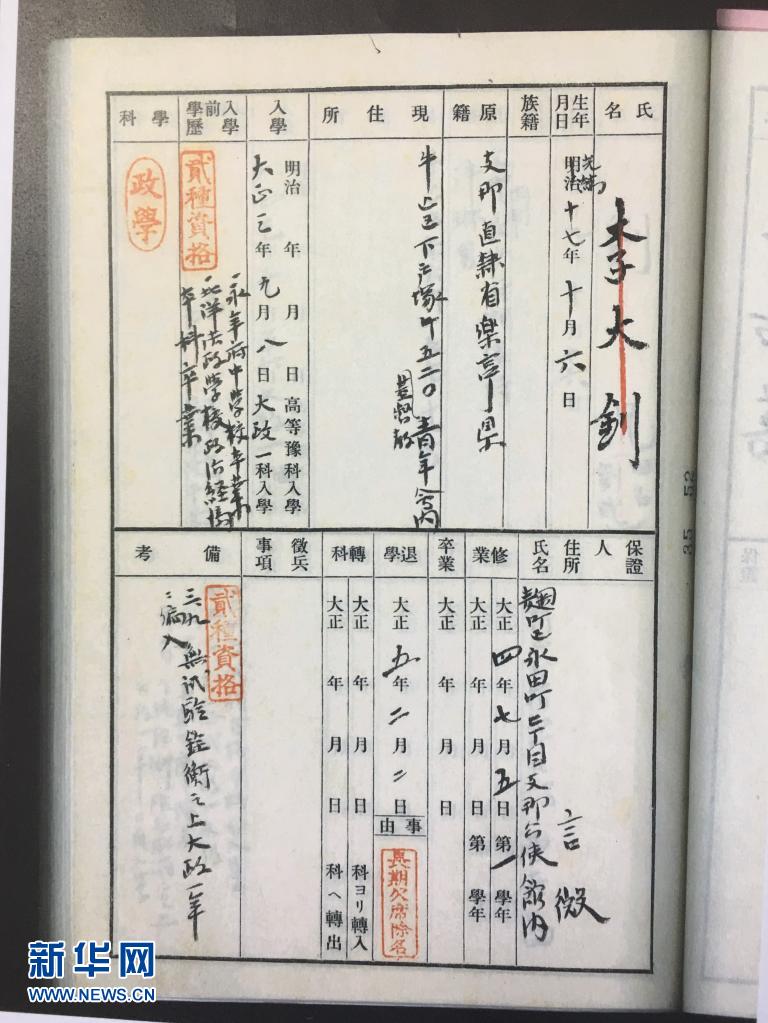 氏名
李大釗
生年月日
光緒
明治十七年十月六日
族籍
原籍
支那直隷省楽亭県
現住所
牛込区下戸塚町五二〇
基督教青年会内
入學
明治 年 月 日高等豫科入學
大正三年九月八日大政一科入學
入學前學歷
貳種資格
永年府中学校卒業
北洋法政学校政治経済
本科卒業
學科
政學
保證人
住所
氏名
麹町区永田町二丁目支那公使館内
言微
修業
大正四年七月五日第一學年
大正 年 月 日第 學年
卒業
大正 年 月 日
退學
大正五年二月二日
事由
長期欠席除名
轉科
大正 年 月 日 科ヨリ轉入
大正 年 月 日 科ヘ轉出
徵兵事項
備考
貳種資格
三、九、無試験銓衡之上大政一年
ニ編入
35 52
保證
新华网
WWW.NEWS.CN